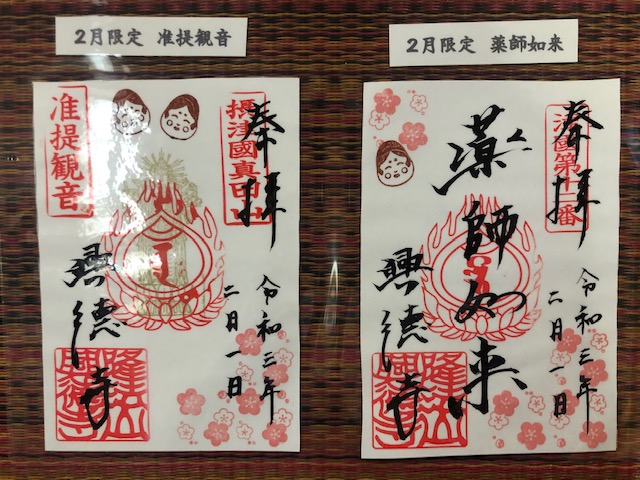 2月限定 准提観音
奉拝
摂津國真田山
准提観音
令和三年
二月一日
興徳寺
2月限定 薬師如来
奉拝
薬師如来
令和三年
二月一日
興徳寺